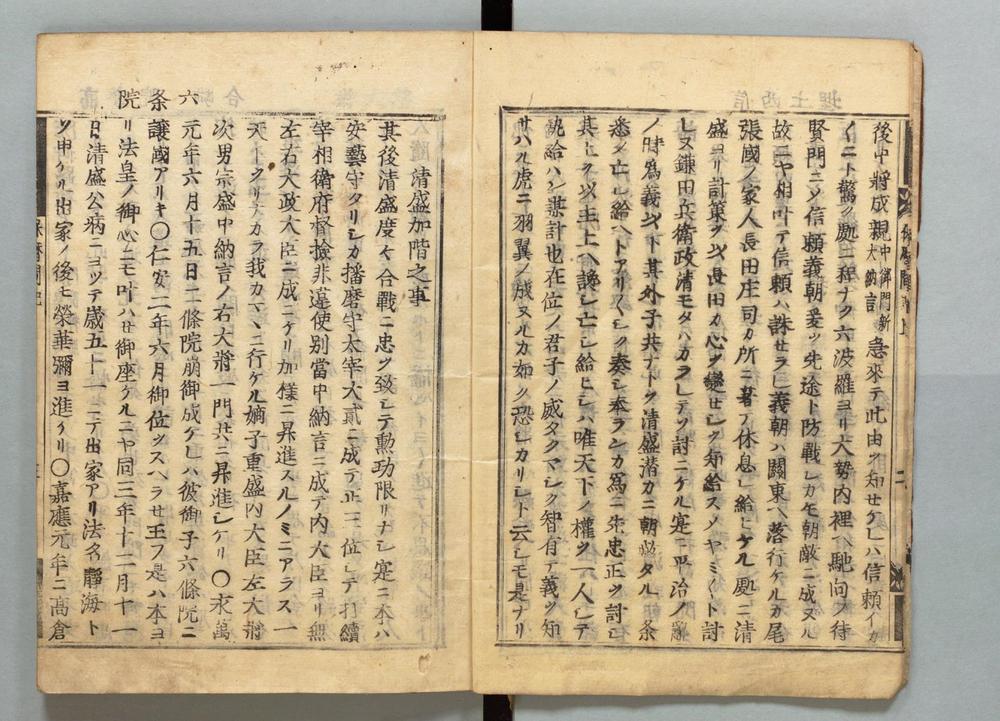 信西土埋
後中將成親中御門新大納言急來テ此由ヲ知セケレハ信頼イカ
〱ニト驚ク處ニ程ナク六波羅ヨリ大勢内裡ヘ馳向フ待
賢門ニメ信頼義朝爰ヲ先途ト防戰シカ𪜈朝敵ニ成ヌル
故ニヤ相叶テ信頼ハ誅セラレ義朝ハ關東ヘ落行ケルカ尾
張國ノ家人長田庄司カ所ニ著テ休息シ給ヒケル處ニ清
盛ヨリ計策ヲ以長田カ心ヲ變セシヲ知給スメヤミ〱ト討
レヌ鎌田兵衛政清モタハカラレテソ討ニケル寔ニ平治ノ亂
ノ時爲義以下其外子共ナトヲ清盛潜カニ朝敵タル条
悉ク亡シ給ヘトアリ〱シク奏シ奉ランカ爲ニ忠正ヲ討シ
其上ヲ以主上ヘ讒シ亡シ給ヒシハ唯天下ノ權ヲ一人シテ
執給ハン謀計也在位ノ君子ノ威タクマシク智有テ義ヲ知
サハル虎ニ羽翼ノ成ヌルカ如ク恐シカリシト云シモ是ナリ
清盛加階之事
其後清盛度々合戰ニ忠ヲ致シテ勲功限リナシ寔ニ本ハ
安藝守タリシカ播磨守太宰大貳ニ成テ正三位シテ打續
宰相衛府督撿非違使別當中納言ニ成テ内大臣ヨリ無
左右大政大臣ニ成ニケリ加樣ニ昇進スルノミニアラス一
天下クリナカラ我カマヽニ行ケル嫡子重盛内大臣左大將
次男宗盛中納言ノ右大將一門共ニ昇進シケリ〇永萬
元年六月十五日二條院崩御成ケレハ彼御子六條院ニ
讓國アリキ〇仁安二年六月御位ヲスヘラセ王フ是ハ本ヨ
リ法皇ノ御心ニモ叶ハセ御座ケルニヤ同三年十二月十一
日清盛公病ニヨツテ歳五十一ニテ出家アリ法名靜海ト
ソ申ケル出家ノ後モ榮華彌ヨ進ケリ〇嘉應元年ニ高倉
六条院
保暦間記